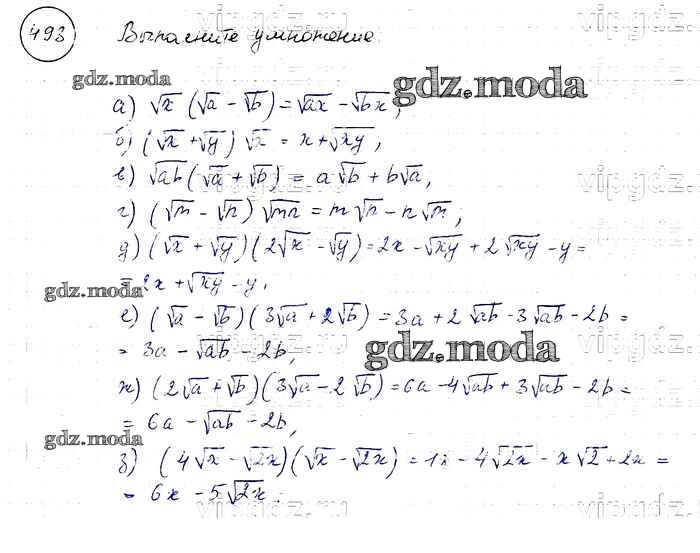 493 Выполните умножение
gdz.moda
а) √x (√a - √b) = √ax - √bx,
gdz.moda
б) (√x + √y) √x = x + √xy,
в) √ab (√a + √b) = a√b + b√a,
vipgdz.ru
г) (√m - √n) √mn = m√n - n√m,
д) (√x + √y)(2√x - √y) = 2x - √xy + 2√xy - y =
= 2x + √xy - y,
gdz.moda
е) (√a - √b)(3√a + 2√b) = 3a + 2√ab - 3√ab - 2b =
= 3a - √ab - 2b,
gdz.moda
ж) (2√a + √b)(3√a - 2√b) = 6a - 4√ab + 3√ab - 2b =
= 6a - √ab - 2b,
gdz.moda
з) (4√x - √2x)(√x - √2x) = - 4√2x - x√2 + 2x =
= 6x - 5√2x.
vipgdz.ru